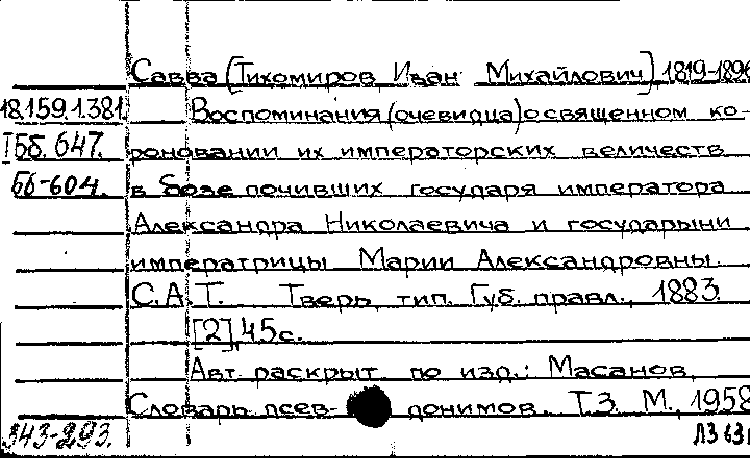 Савва [Тихомиров, Иван Михайлович], 1819-1896
18.159.1.381
Воспоминания (очевидца) о священном ко-
I Бб. 647.
роновании их императорских величеств
Бб-604.
в бозе почивших государя императора
Александра Николаевича и государыни
императрицы Марии Александровны.
С.А.Т. Тверь, тип. Губ. правл., 1883.
[2], 45 с.
Авт. раскрыт по изд.: Масанов,
Словарь псев- донимов. Т.3. М., 1958
343-293.
ЛЗ 63